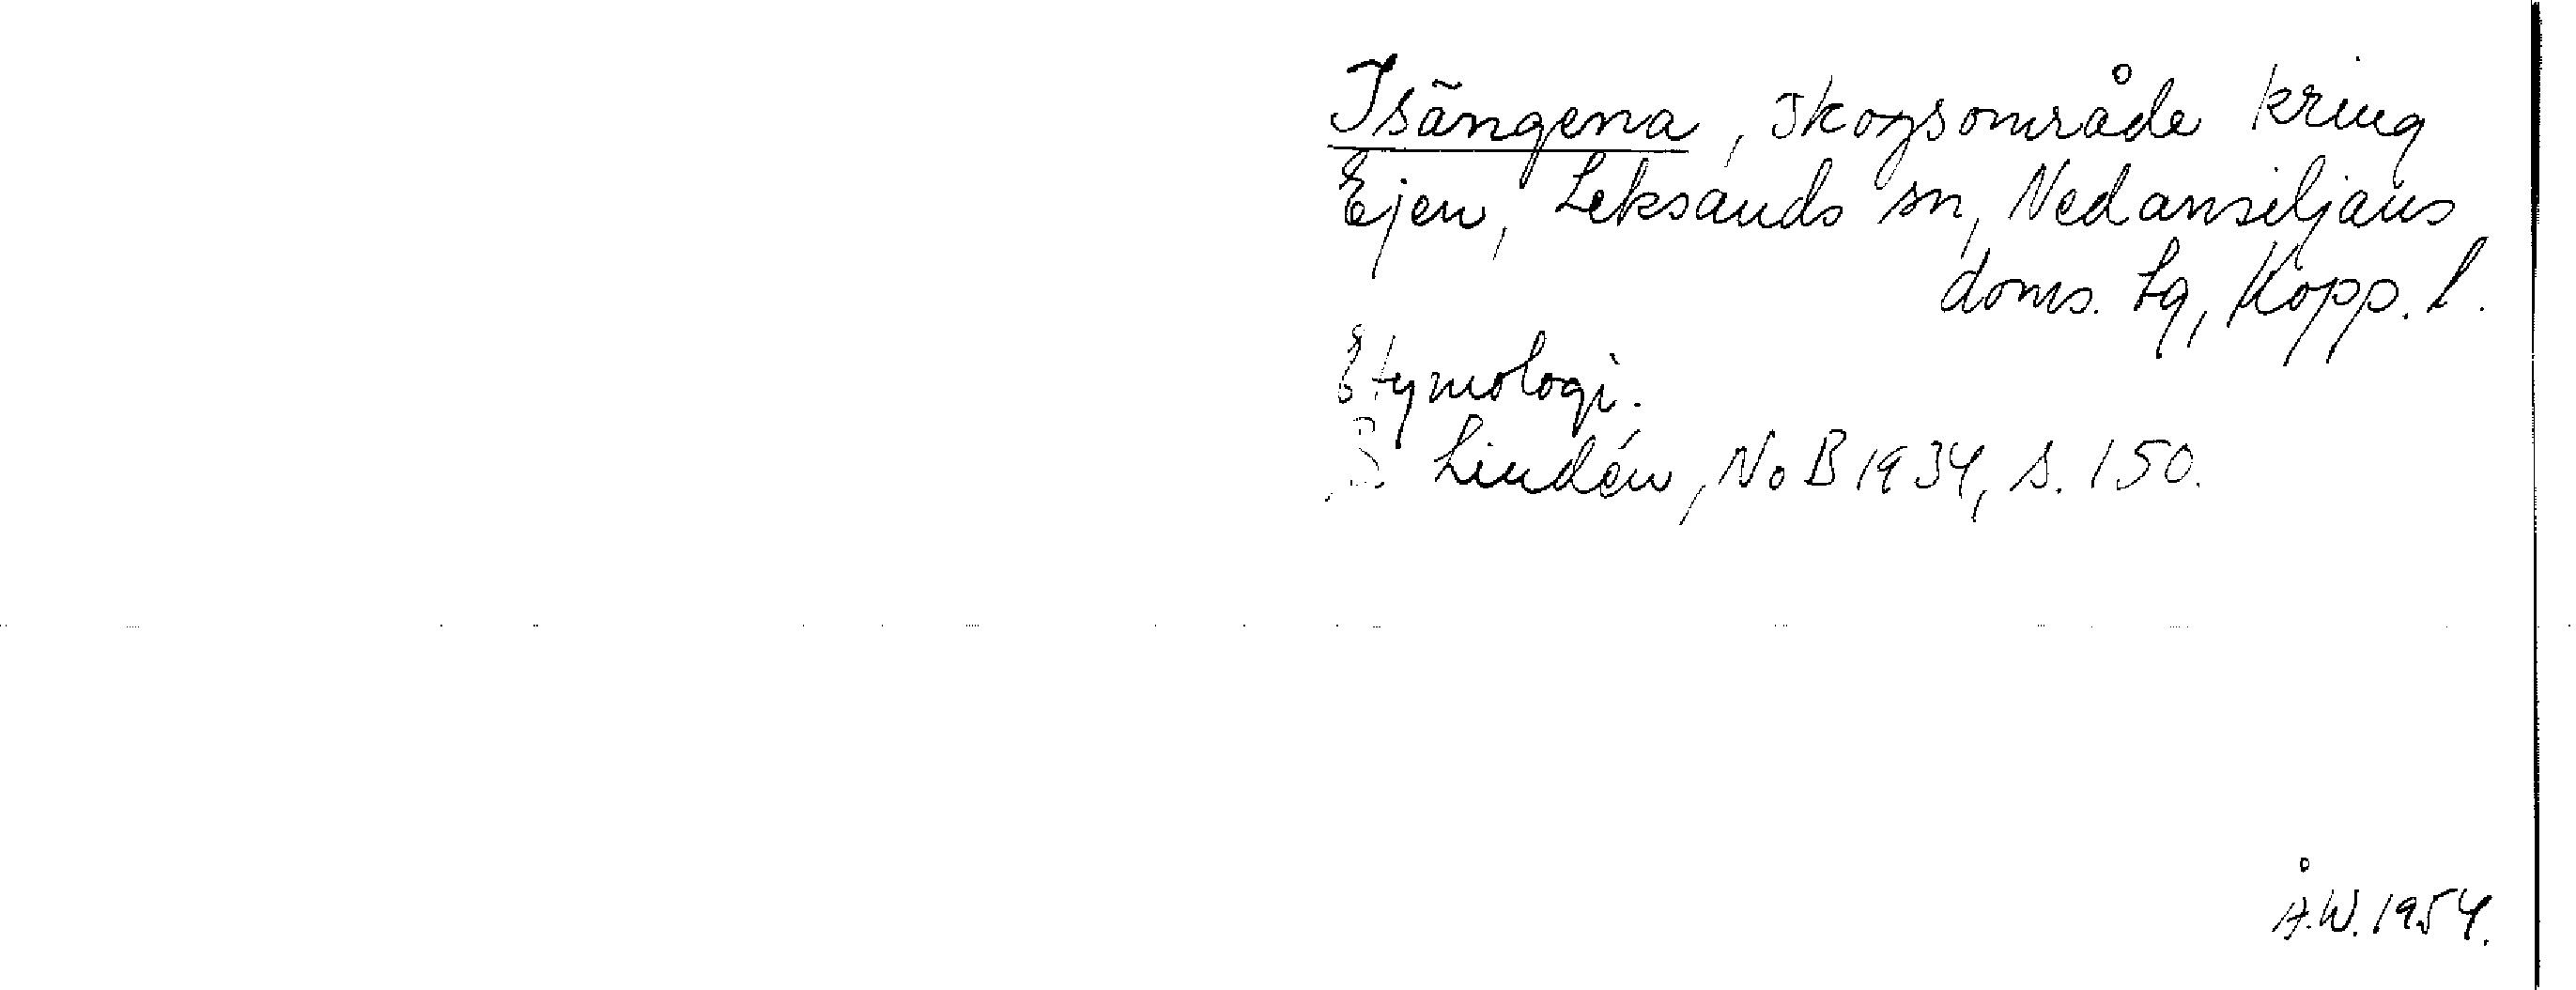 Isängena, skogsområde kring
Ejen, Leksands sn, Nedansiljans
doms. lg, Kopp. l.
Etymologi.
B Lindén, NoB 1934, s. 150.
Å.W. 1954.